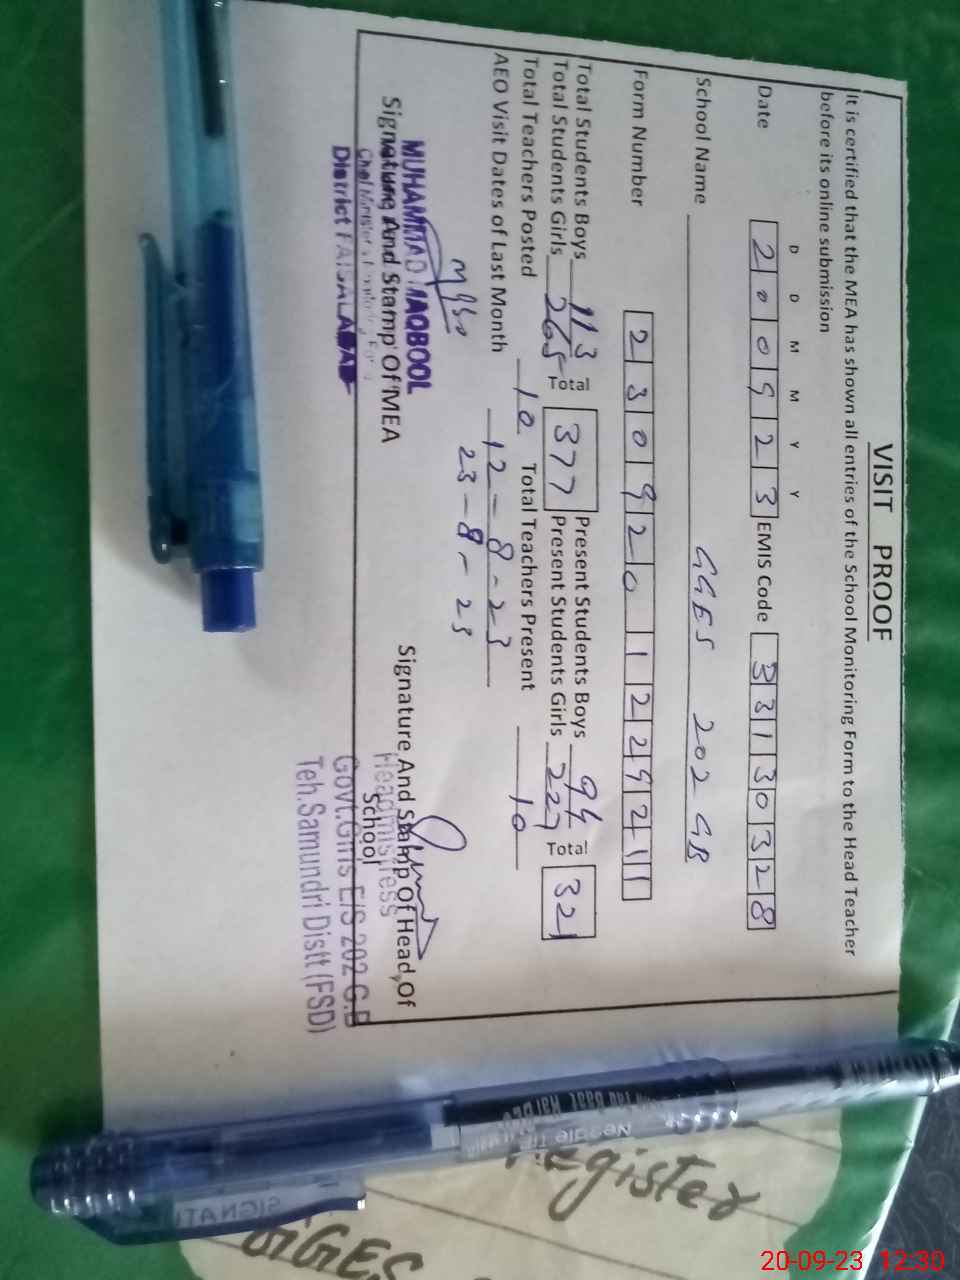 VISIT PROOF
It is certified that the MEA has shown all entries of the School Monitoring Form to the Head Teacher
before its online submission
D D M M Y Y
Date 200923 EMIS Code 33130328
School Name GGES 202 GB
Form Number 230920 1229211
Total Students Boys 113 Present Students Boys 94
Total 377 Total 321
Total Students Girls 265 Present Students Girls 227
Total Teachers Posted 10 Total Teachers Present 10
AEO Visit Dates of Last Month 12-8-23
23-8-23
MUHAMMAD MAQBOOL
Signature And Stamp Of MEA
District FAISALABAD
Signature And Stamp Of Head Of
School
Headmistress
Govt.Girls E/S 202 G.B
Teh.Samundri Distt (FSD)
Needle Tip
SIGNAT
Register
GGES
20-09-23 12:30